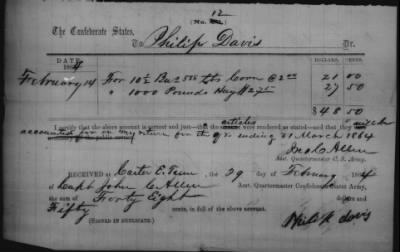 12
(No. 22.)
The Confederate States,
To Philip Davis Dr.
DATE. DOLLARS. CENTS.
1864
February 14 For 10½ Bu Corn @ 2 00 21 00
" 1000 Pounds Hay 27 50
$ 48 50
I certify that the above account is correct and just—that the articles were rendered as stated—and that they
accounted for on my return for the qr. ending 31 March 1864
Jno C Allen
Asst. Quartermaster C. S. Army.
RECEIVED at Carter C Tenn the 29 day of February 1864
of Capt John C Allen Asst. Quartermaster Confederate States Army,
the sum of Forty Eight dollars and
Fifty cents, in full of the above account.
(SIGNED IN DUPLICATE.) Philip Davis